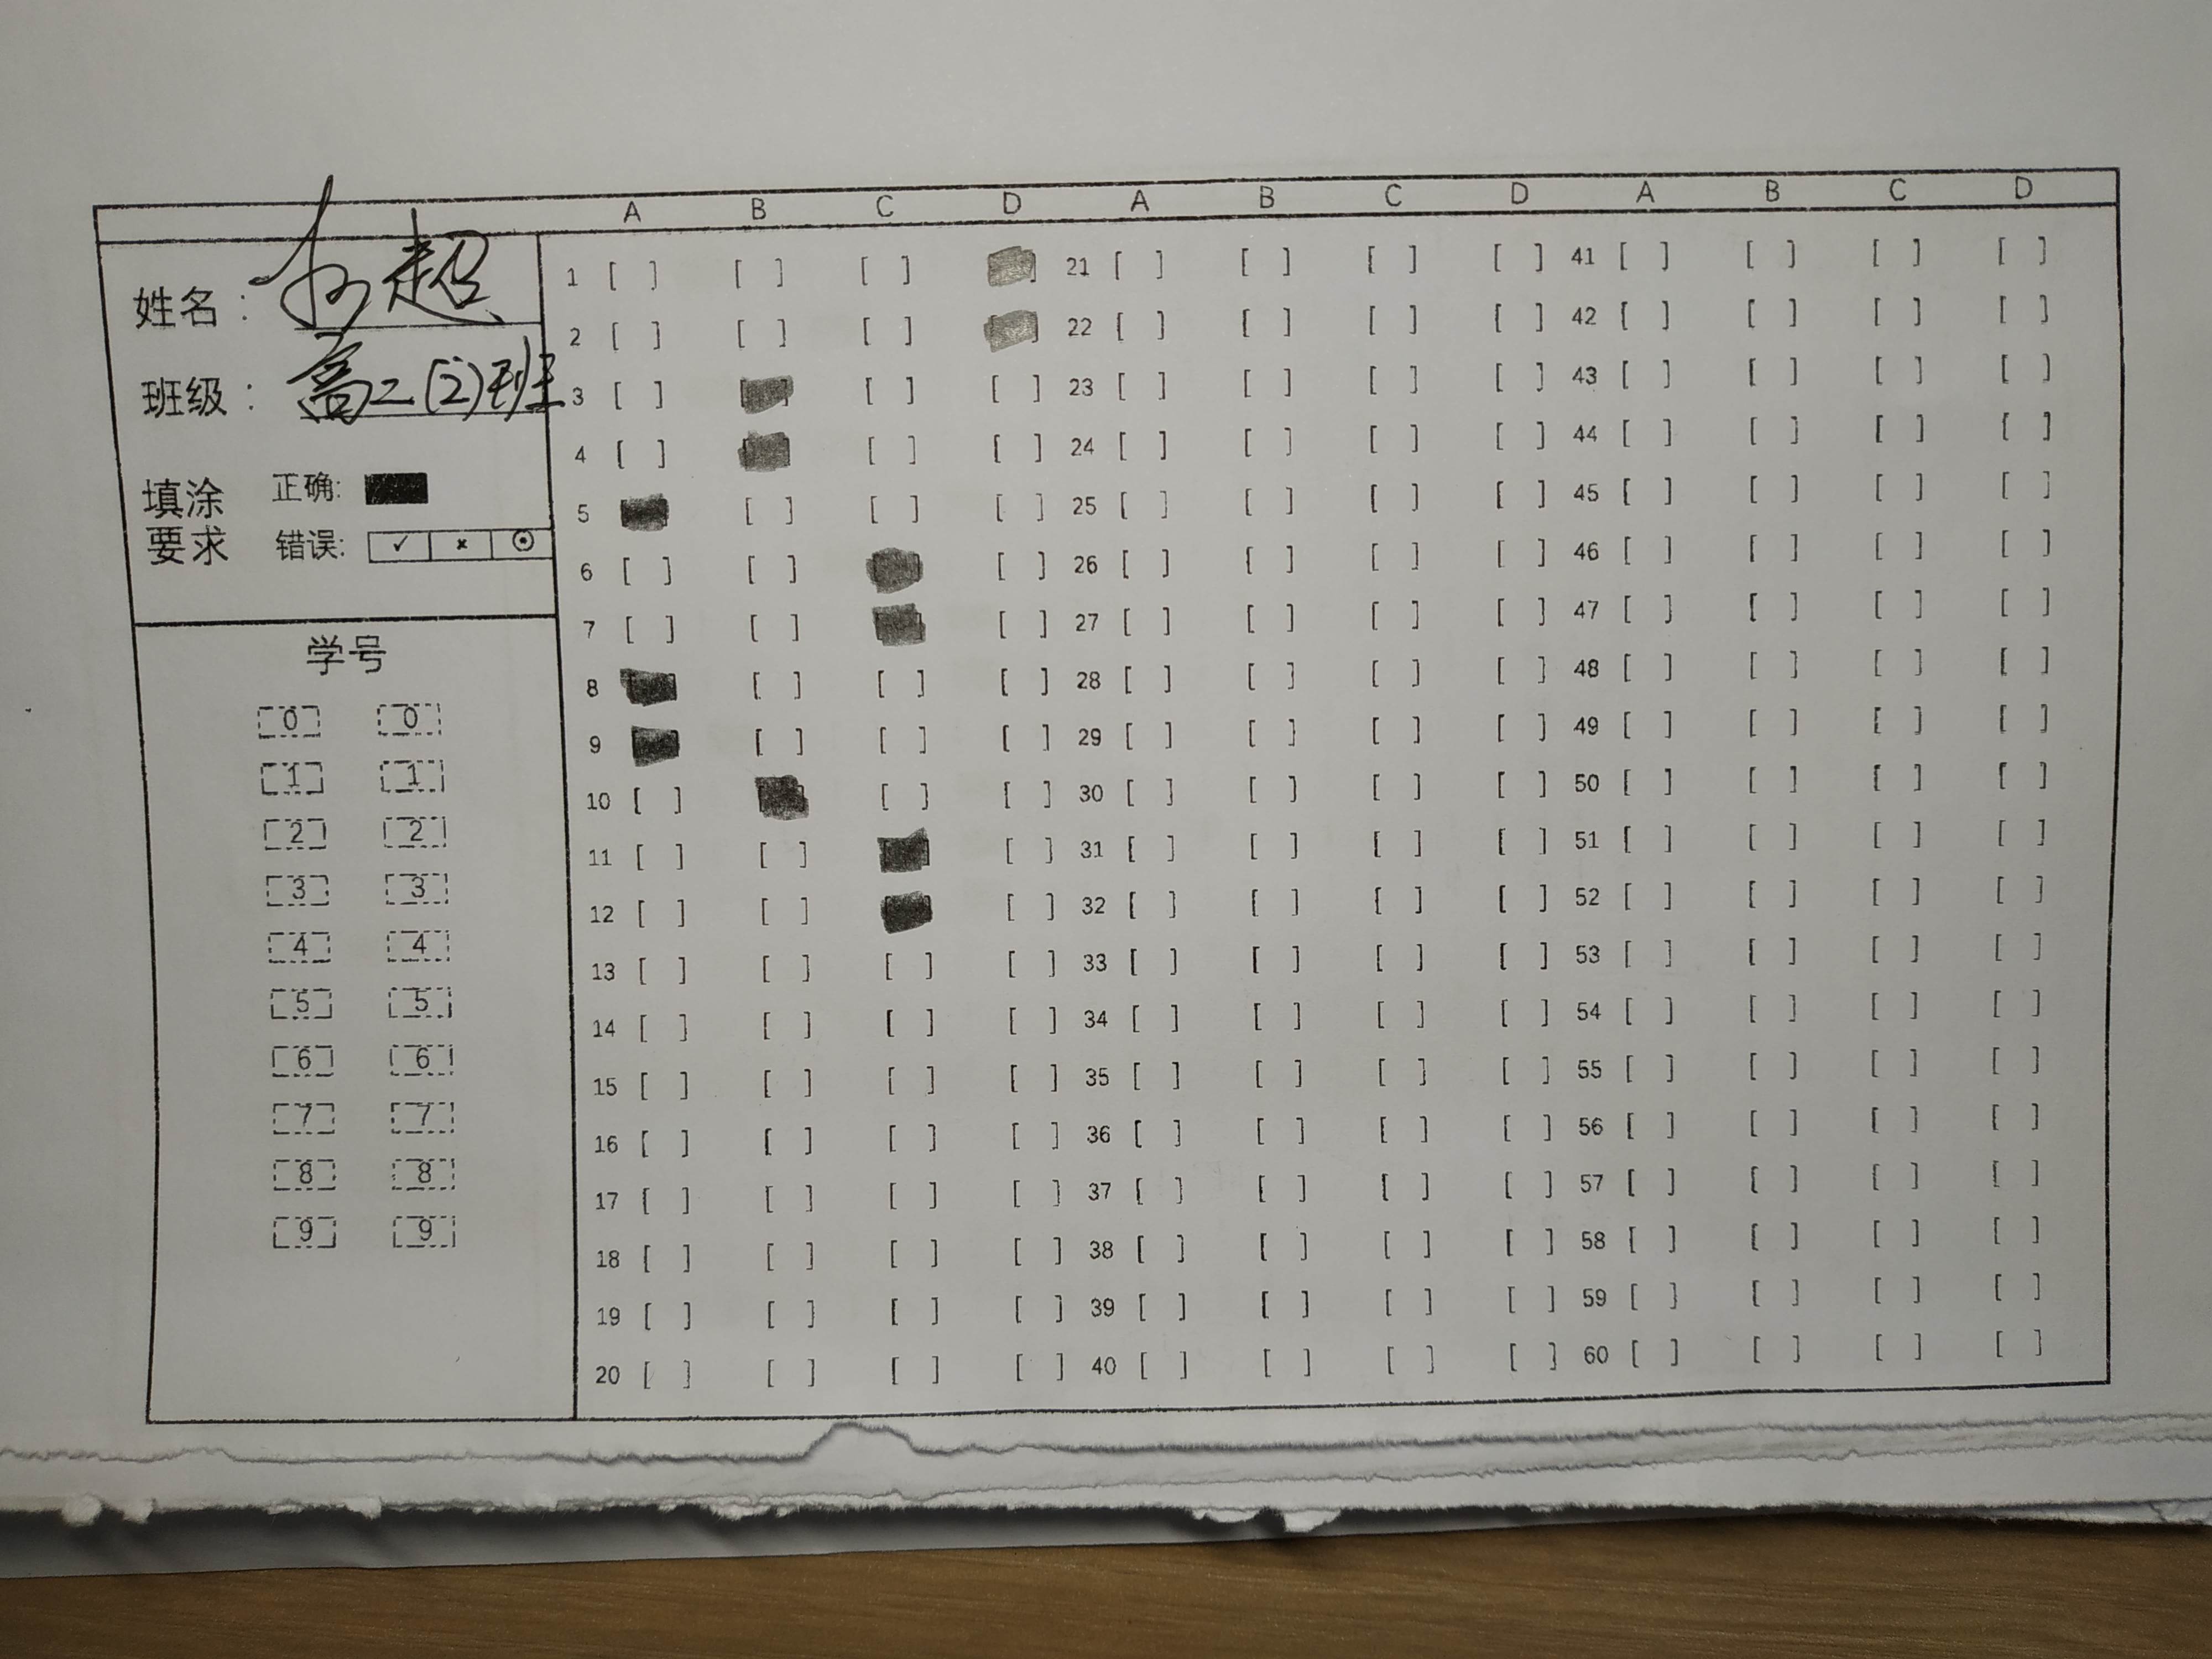 A B C D A B C D A B C D
姓名：
超
班级：高二(2)班
填涂要求
正确:
错误: ✓ × ⊙
学号
0 0
1 1
2 2
3 3
4 4
5 5
6 6
7 7
8 8
9 9
1 [ ] [ ] [ ] 21 [ ] [ ] [ ] [ ] 41 [ ] [ ] [ ] [ ]
2 [ ] [ ] [ ] 22 [ ] [ ] [ ] [ ] 42 [ ] [ ] [ ] [ ]
3 [ ] [ ] [ ] 23 [ ] [ ] [ ] [ ] 43 [ ] [ ] [ ] [ ]
4 [ ] [ ] [ ] 24 [ ] [ ] [ ] [ ] 44 [ ] [ ] [ ] [ ]
5 [ ] [ ] [ ] 25 [ ] [ ] [ ] [ ] 45 [ ] [ ] [ ] [ ]
6 [ ] [ ] [ ] 26 [ ] [ ] [ ] [ ] 46 [ ] [ ] [ ] [ ]
7 [ ] [ ] [ ] 27 [ ] [ ] [ ] [ ] 47 [ ] [ ] [ ] [ ]
8 [ ] [ ] [ ] 28 [ ] [ ] [ ] [ ] 48 [ ] [ ] [ ] [ ]
9 [ ] [ ] [ ] 29 [ ] [ ] [ ] [ ] 49 [ ] [ ] [ ] [ ]
10 [ ] [ ] [ ] 30 [ ] [ ] [ ] [ ] 50 [ ] [ ] [ ] [ ]
11 [ ] [ ] [ ] 31 [ ] [ ] [ ] [ ] 51 [ ] [ ] [ ] [ ]
12 [ ] [ ] [ ] 32 [ ] [ ] [ ] [ ] 52 [ ] [ ] [ ] [ ]
13 [ ] [ ] [ ] [ ] 33 [ ] [ ] [ ] [ ] 53 [ ] [ ] [ ] [ ]
14 [ ] [ ] [ ] [ ] 34 [ ] [ ] [ ] [ ] 54 [ ] [ ] [ ] [ ]
15 [ ] [ ] [ ] [ ] 35 [ ] [ ] [ ] [ ] 55 [ ] [ ] [ ] [ ]
16 [ ] [ ] [ ] [ ] 36 [ ] [ ] [ ] [ ] 56 [ ] [ ] [ ] [ ]
17 [ ] [ ] [ ] [ ] 37 [ ] [ ] [ ] [ ] 57 [ ] [ ] [ ] [ ]
18 [ ] [ ] [ ] [ ] 38 [ ] [ ] [ ] [ ] 58 [ ] [ ] [ ] [ ]
19 [ ] [ ] [ ] [ ] 39 [ ] [ ] [ ] [ ] 59 [ ] [ ] [ ] [ ]
20 [ ] [ ] [ ] [ ] 40 [ ] [ ] [ ] [ ] 60 [ ] [ ] [ ] [ ]